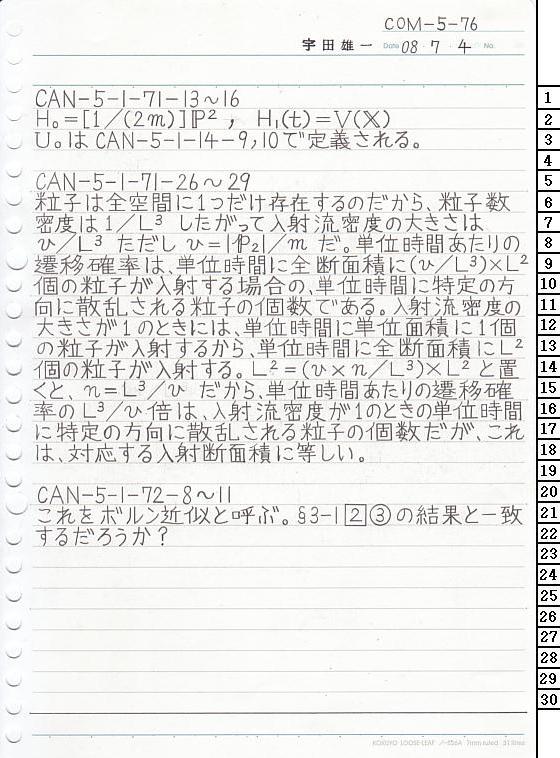 COM-5-76
宇田雄一 Date 08・7・4 No.
CAN-5-1-71-13～16
H₀=[1/(2m)]ℙ², H₁(t)=V(𝕏)
U₀はCAN-5-1-14-9,10で定義される。
CAN-5-1-71-26～29
粒子は全空間に1つだけ存在するのだから、粒子数
密度は1/L³ したがって入射流密度の大きさは
v/L³ ただし v=|ℙ₂|/m だ。単位時間あたりの
遷移確率は、単位時間に全断面積に(v/L³)×L²
個の粒子が入射する場合の、単位時間に特定の方
向に散乱される粒子の個数である。入射流密度の
大きさが1のときには、単位時間に単位面積に1個
の粒子が入射するから、単位時間に全断面積にL²
個の粒子が入射する。L²=(v×n/L³)×L² と置
くと、n=L³/v だから、単位時間あたりの遷移確
率のL³/v倍は、入射流密度が1のときの単位時間
に特定の方向に散乱される粒子の個数だが、これ
は、対応する入射断面積に等しい。
CAN-5-1-72-8～11
これをボルン近似と呼ぶ。§3-1②③の結果と一致
するだろうか?
KOKUYO LOOSE-LEAF ノ-836A 7mm ruled 31 lines
1
2
3
4
5
6
7
8
9
10
11
12
13
14
15
16
17
18
19
20
21
22
23
24
25
26
27
28
29
30